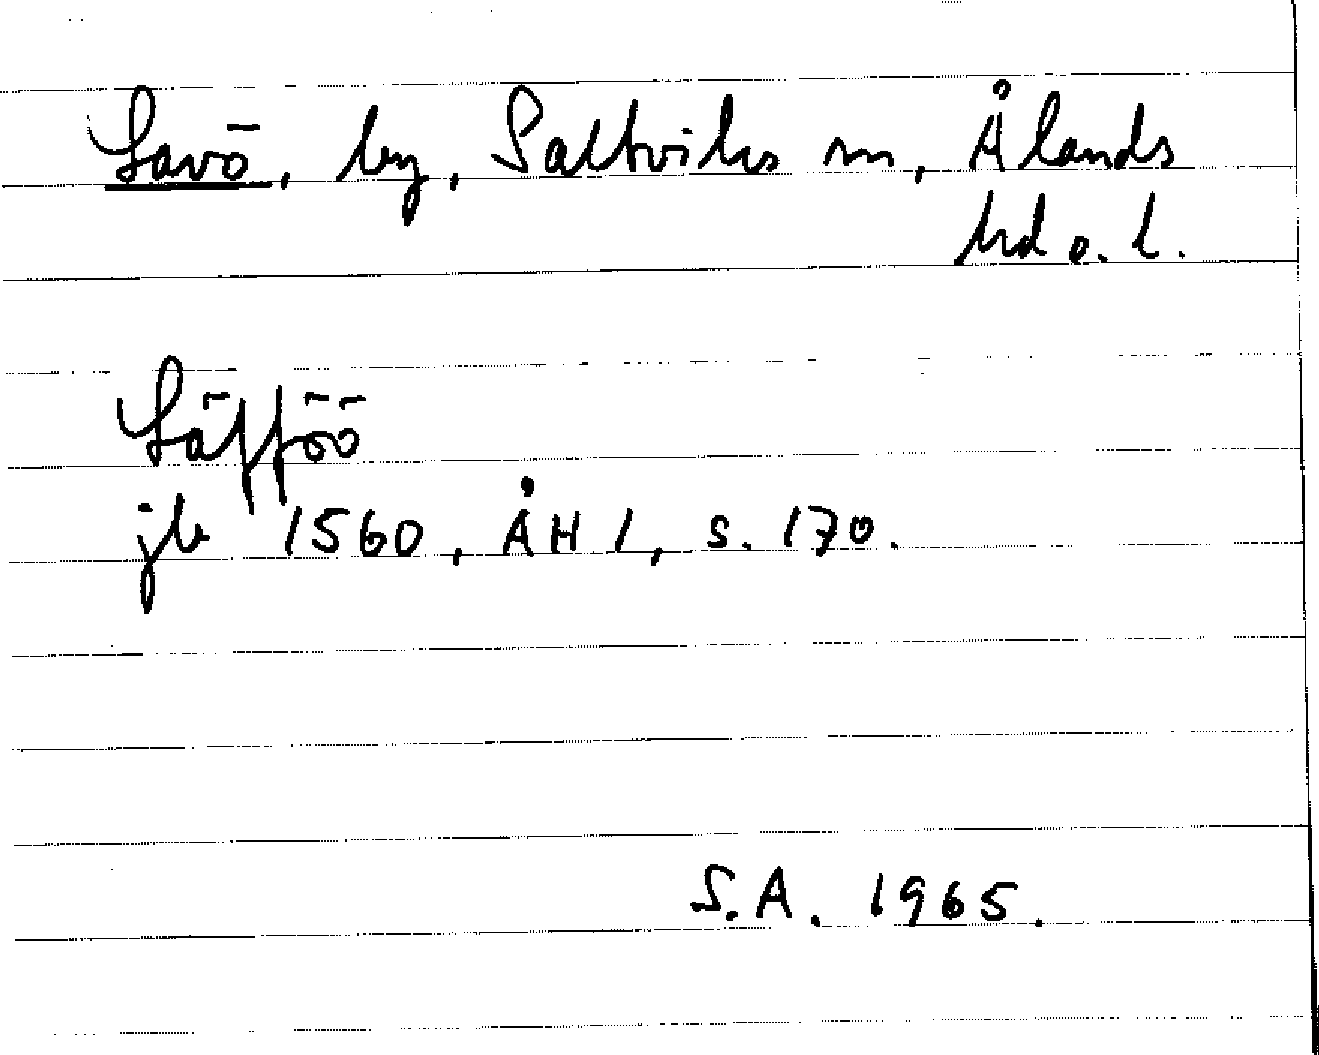 Savö, by, Saltviks sn, Ålands
hd o. l.
Säfföö
jb 1560, ÅH 1, s. 170.
S.A. 1965.